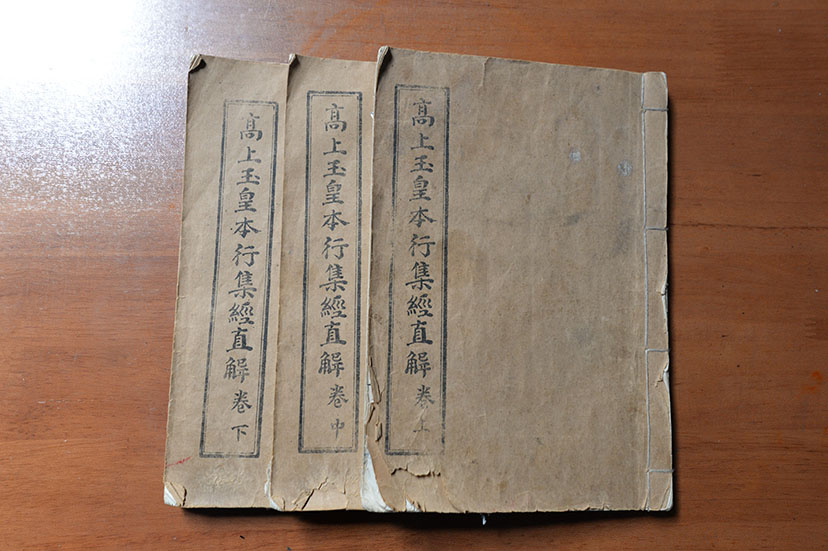 高上玉皇本行集經直解 卷上
高上玉皇本行集經直解 卷中
高上玉皇本行集經直解 卷下